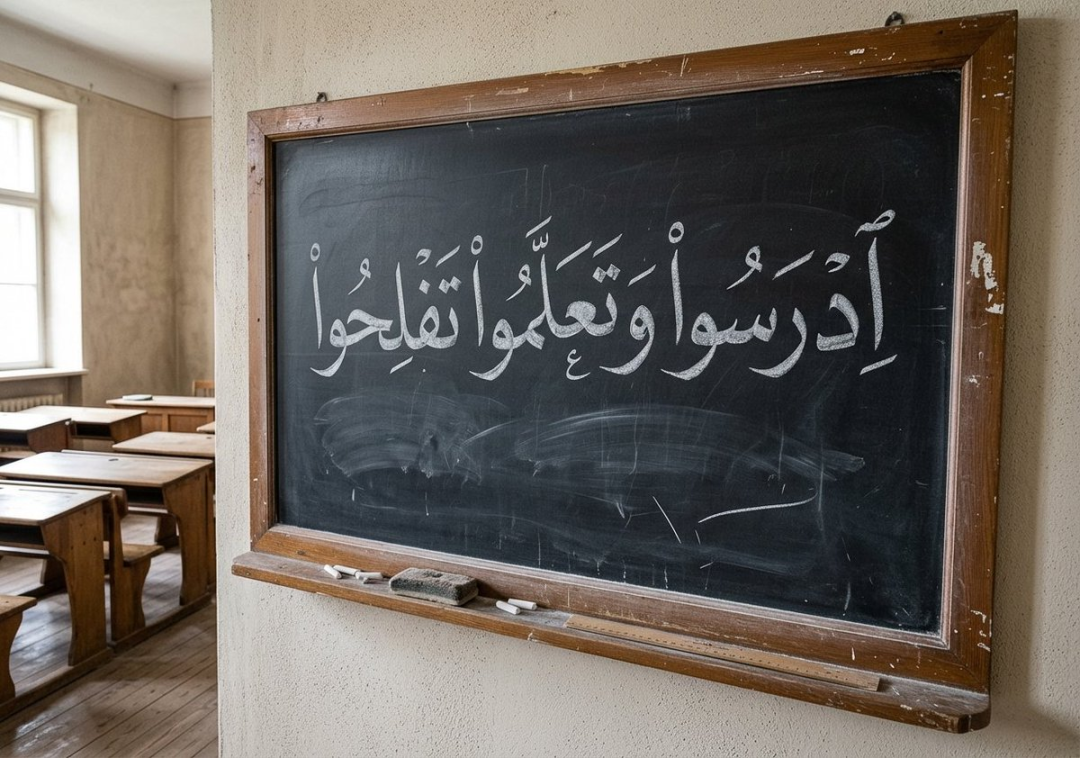 اِدرَسُواْ وَتَعَلَّمُواْ تَفلِحُواْ